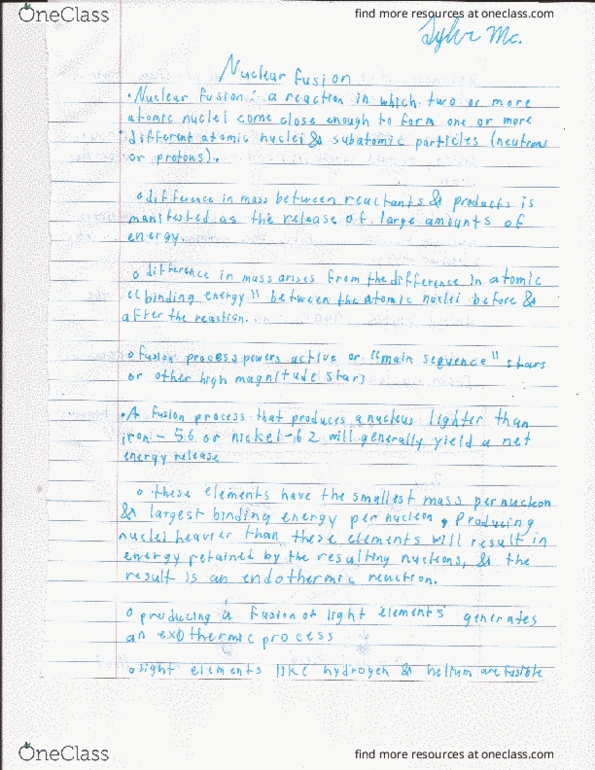 OneClass
find more resources at oneclass.com
Tyler Mc.
Nuclear fusion
• Nuclear fusion: a reaction in which two or more
atomic nuclei come close enough to form one or more
different atomic nuclei & subatomic particles (neutrons
or protons).
o difference in mass between reactants & products is
manifested as the release of large amounts of
energy.
o difference in mass arises from the difference in atomic
"binding energy" between the atomic nuclei before &
after the reaction.
o fusion process powers active or "main sequence" stars
or other high magnitude stars
• A fusion process that produces a nucleus lighter than
iron-56 or nickel-62 will generally yield a net
energy release
o these elements have the smallest mass per nucleon
& largest binding energy per nucleon, Producing
nuclei heavier than these elements will result in
energy retained by the resulting nuctions, & the
result is an endothermic reaction.
o producing a fusion of light elements generates
an exothermic process
o light elements like hydrogen & helium are fusible
OneClass
find more resources at oneclass.com